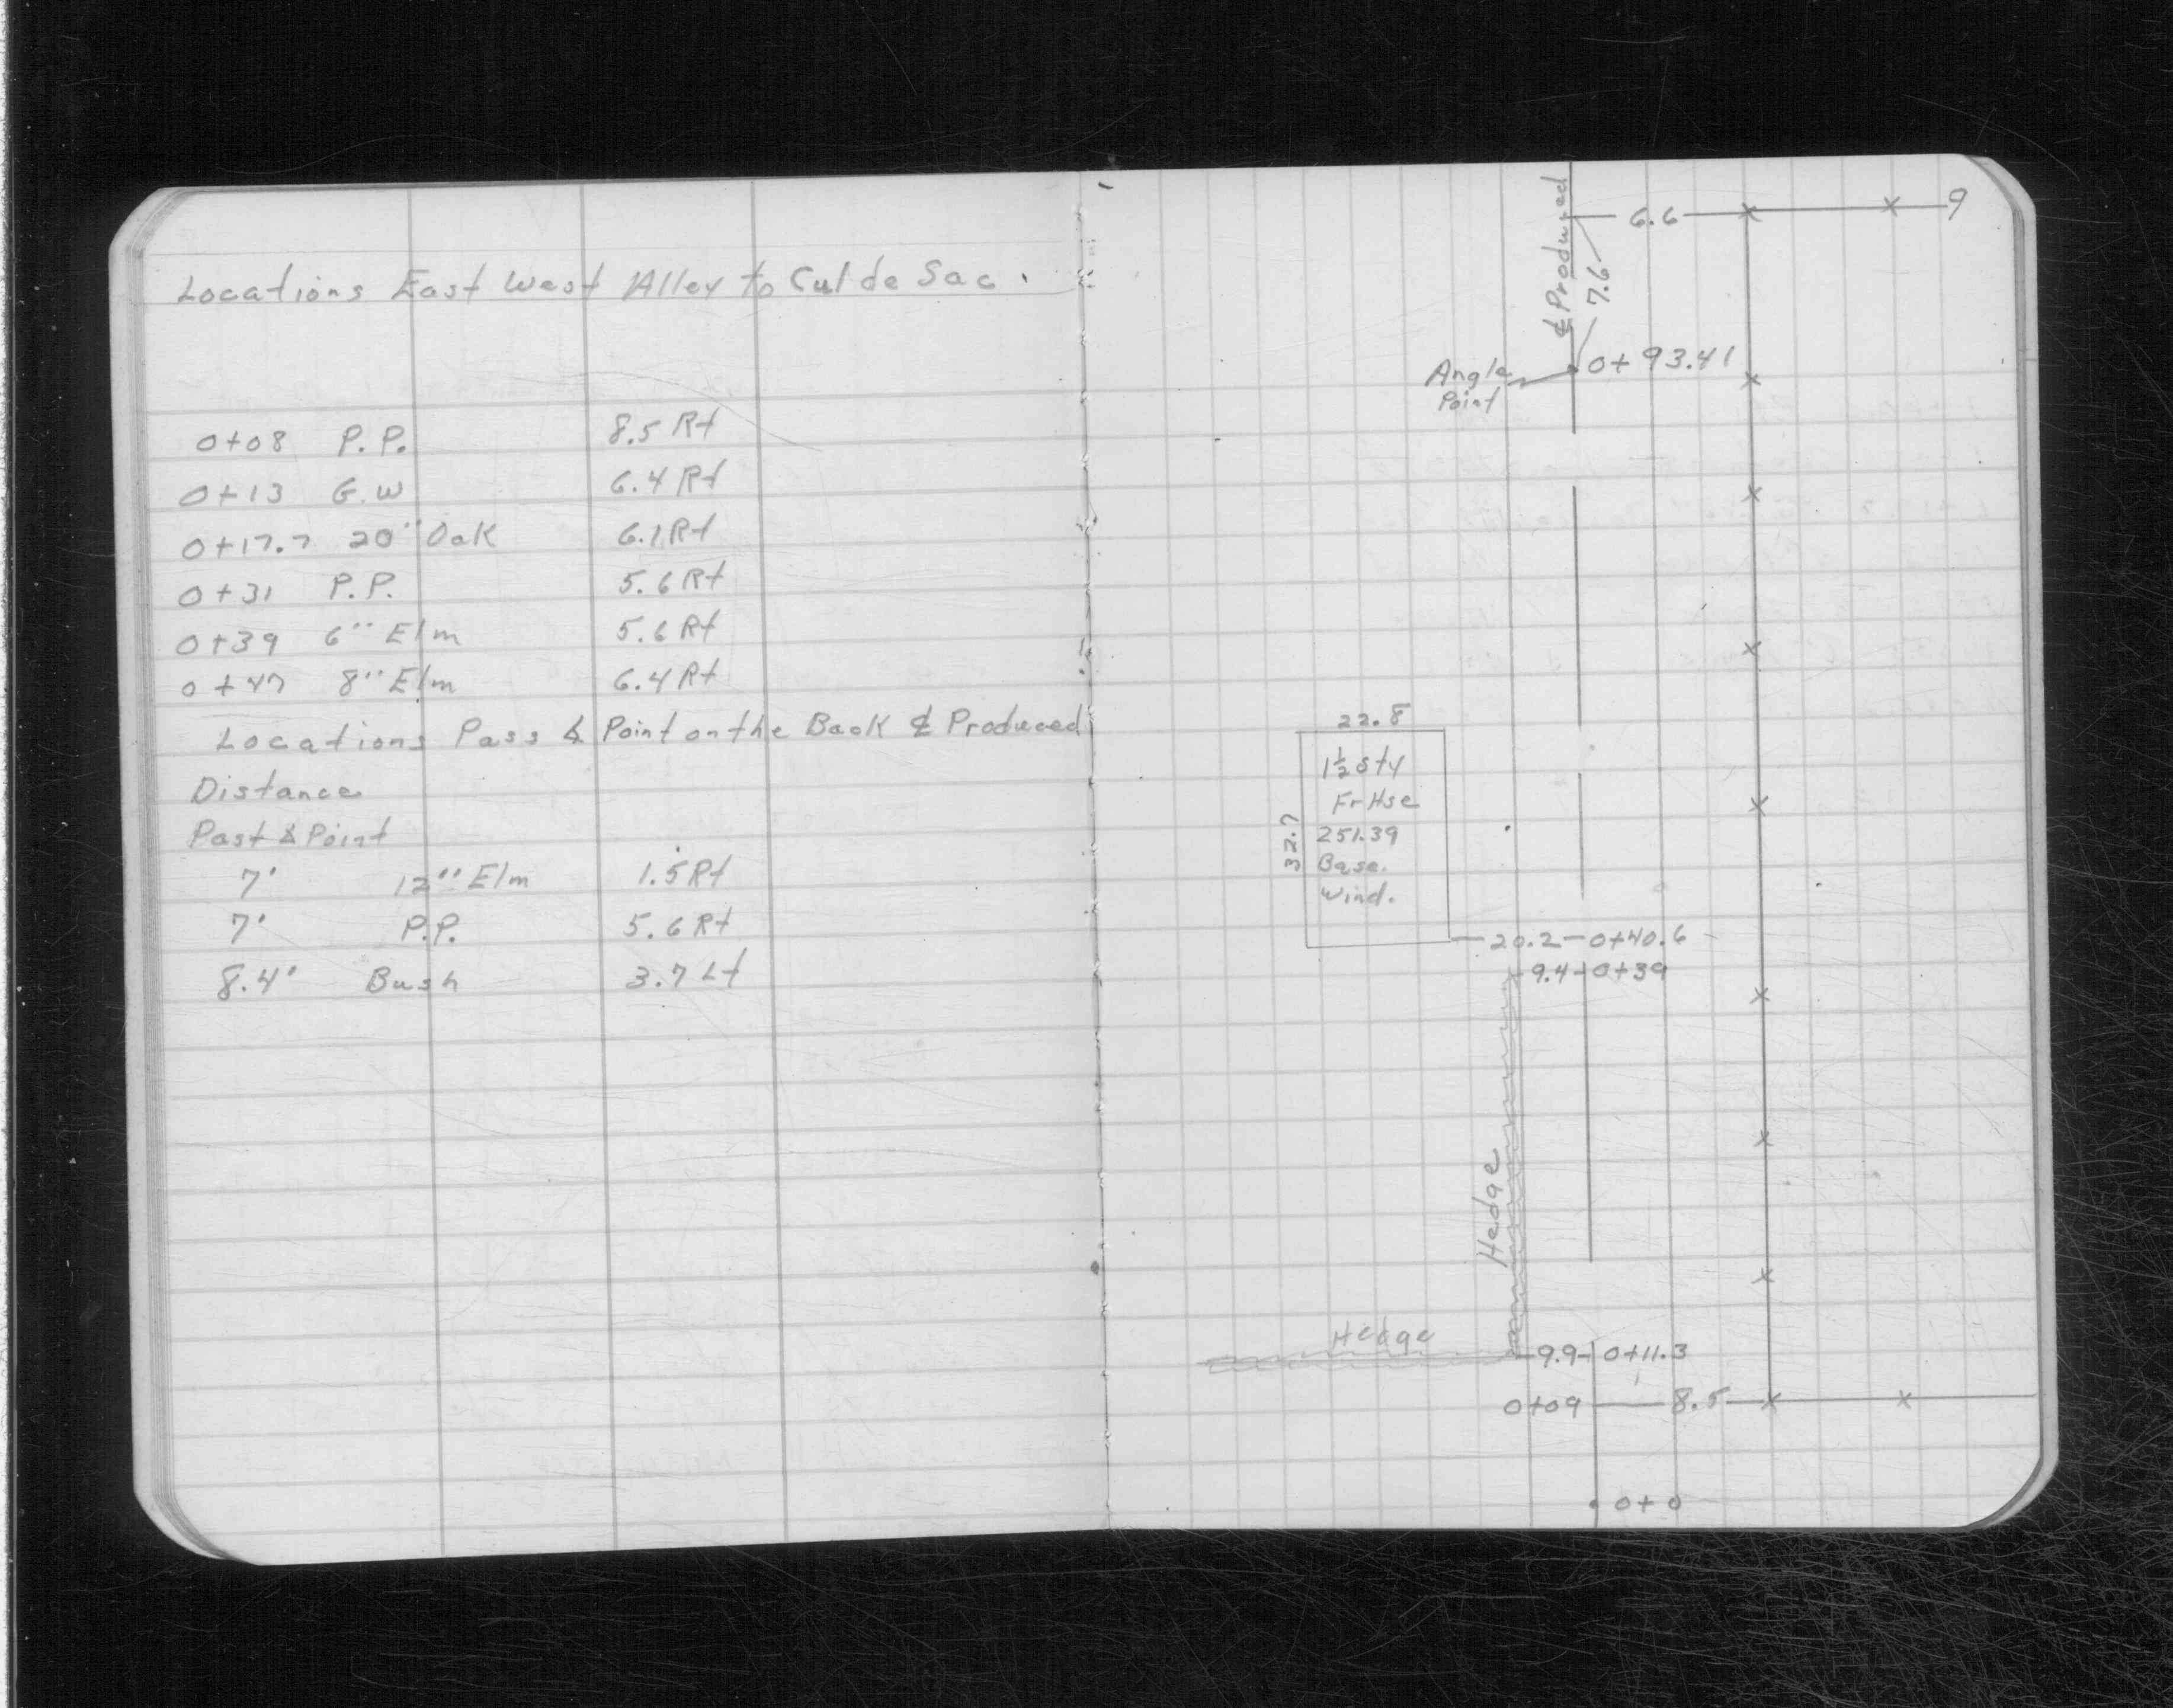 Locations East West Alley to Cul de Sac.
0+08 P.P. 8.5 Rt
0+13 G.W 6.4 Rt
0+17.7 20" Oak 6.1 Rt
0+31 P.P. 5.6 Rt
0+39 6" Elm 5.6 Rt
0+47 8" Elm 6.4 Rt
Locations Pass ∆ Point on the Back ℄ Produced
Distance
Past ∆ Point
7' 12" Elm 1.5 Rt
7' P.P. 5.6 Rt
8.4' Bush 3.7 Lt
9
6.6
℄ Produced
7.6
0+93.41
Angle
Point
22.8
1½ Sty
Fr Hse
251.39
Base.
Wind.
32.7
20.2 0+40.6
9.4 0+39
Hedge
Hedge
9.9 0+11.3
0+09 8.5
0+0